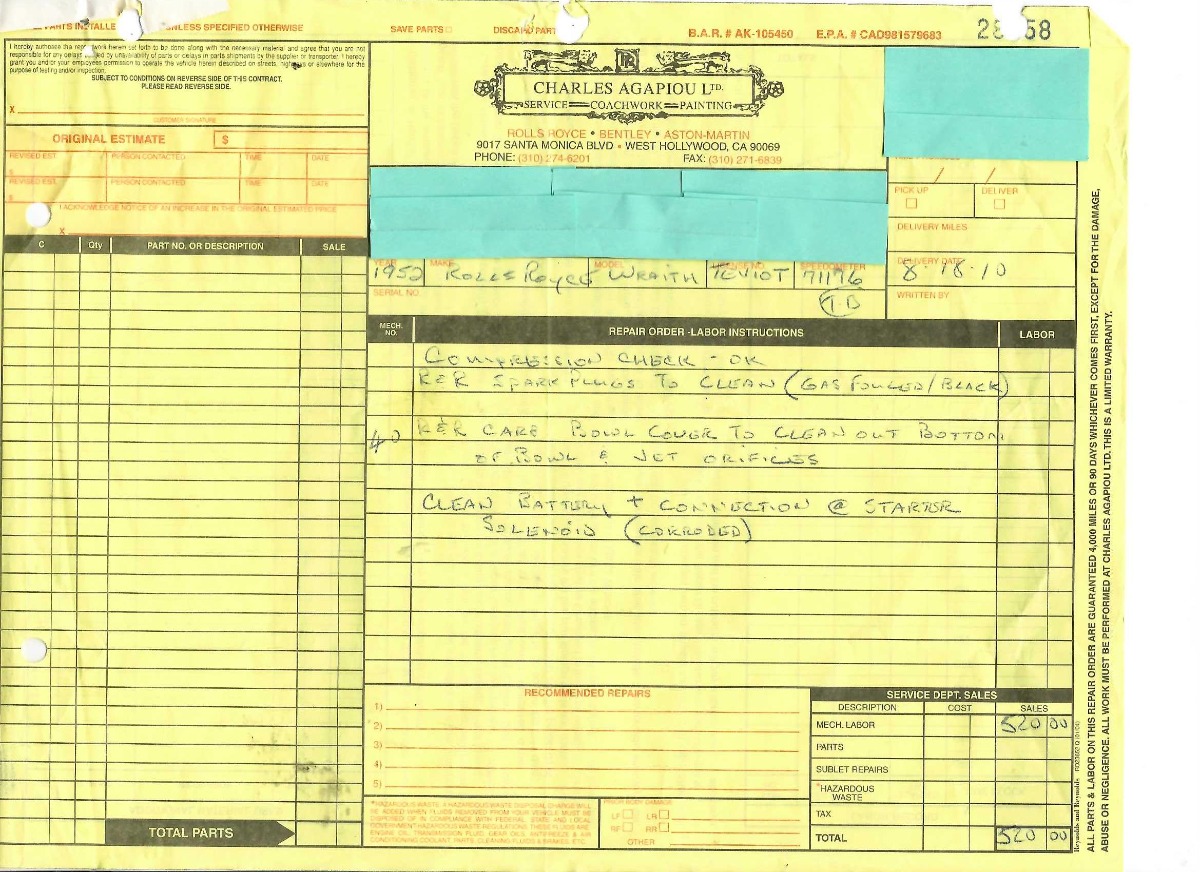 PARTS INSTALLE UNLESS SPECIFIED OTHERWISE
SAVE PARTS □ DISCARD PART
B.A.R. # AK-105450 E.P.A. # CAD981579683
28 58
I hereby authorize the repair work herein set forth to be done along with the necessary material and agree that you are not
responsible for any delays caused by unavailability of parts or delays in parts shipments by the supplier or transporter. I hereby
grant you and/or your employees permission to operate the vehicle herein described on streets, highways or elsewhere for the
purpose of testing and/or inspection.
SUBJECT TO CONDITIONS ON REVERSE SIDE OF THIS CONTRACT.
PLEASE READ REVERSE SIDE.
X
CUSTOMER SIGNATURE
CHARLES AGAPIOU LTD.
SERVICE COACHWORK PAINTING
ROLLS ROYCE • BENTLEY • ASTON-MARTIN
9017 SANTA MONICA BLVD • WEST HOLLYWOOD, CA 90069
PHONE: (310) 274-6201 FAX: (310) 271-6839
ORIGINAL ESTIMATE $
REVISED EST. PERSON CONTACTED TIME DATE
$
REVISED EST. PERSON CONTACTED TIME DATE
$
I ACKNOWLEDGE NOTICE OF AN INCREASE IN THE ORIGINAL ESTIMATED PRICE
X
/ /
PICK UP □ DELIVER □
DELIVERY MILES
DELIVERY DATE
8-18-10
WRITTEN BY
YEAR MAKE MODEL LICENSE NO. SPEEDOMETER
1952 ROLLS ROYCE WRAITH TEVIOT 71176
SERIAL NO.
TB
C Qty PART NO. OR DESCRIPTION SALE
MECH. NO. REPAIR ORDER -LABOR INSTRUCTIONS LABOR
COMPRESSION CHECK - OK
R&R SPARK PLUGS TO CLEAN (GAS FOULED/BLACK)
40 R&R CARB BOWL COVER TO CLEAN OUT BOTTOM
OF BOWL & JET ORIFICES
CLEAN BATTERY + CONNECTION @ STARTER
SOLENOID (CORRODED)
TOTAL PARTS
RECOMMENDED REPAIRS
1)
2)
3)
4)
5)
*HAZARDOUS WASTE: A HAZARDOUS WASTE DISPOSAL CHARGE WILL
BE ADDED WHEN FLUIDS REMOVED FROM YOUR VEHICLE MUST BE
DISPOSED OF IN COMPLIANCE WITH FEDERAL, STATE AND LOCAL
GOVERNMENT HAZARDOUS WASTE REGULATIONS. THESE FLUIDS ARE:
ENGINE OIL, TRANSMISSION FLUID, GEAR OILS, ANTIFREEZE & AIR
CONDITIONING COOLANT PARTS, CLEANING FLUIDS & BRAKES, ETC.
PRIOR BODY DAMAGE
LF □ LR □
RF □ RR □
OTHER
SERVICE DEPT. SALES
DESCRIPTION COST SALES
MECH. LABOR 520 00
PARTS
SUBLET REPAIRS
*HAZARDOUS WASTE
TAX
TOTAL 520 00
ALL PARTS & LABOR ON THIS REPAIR ORDER ARE GUARANTEED 4,000 MILES OR 90 DAYS WHICHEVER COMES FIRST, EXCEPT FOR THE DAMAGE,
ABUSE OR NEGLIGENCE. ALL WORK MUST BE PERFORMED AT CHARLES AGAPIOU LTD. THIS IS A LIMITED WARRANTY.
Reynolds and Reynolds